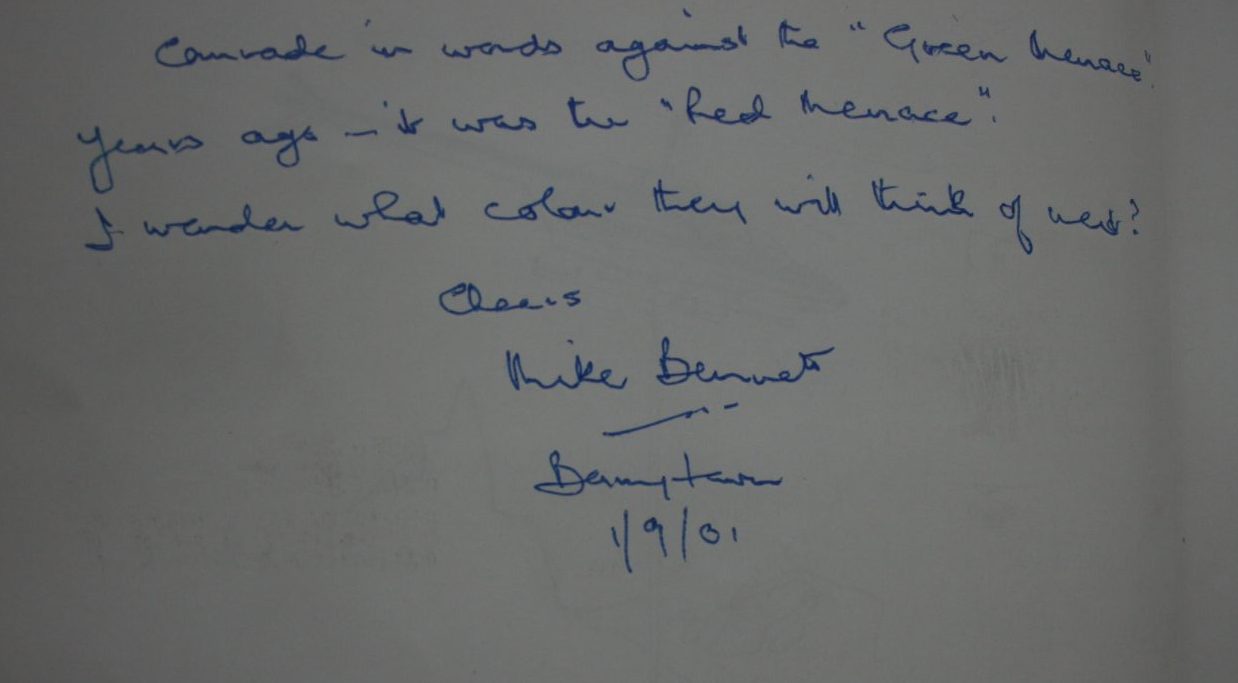 Comrade in words against the "Green Menace".
Years ago – it was the "Red Menace".
I wonder what colour they will think of next?
Cheers
Mike Bennett
1/9/01